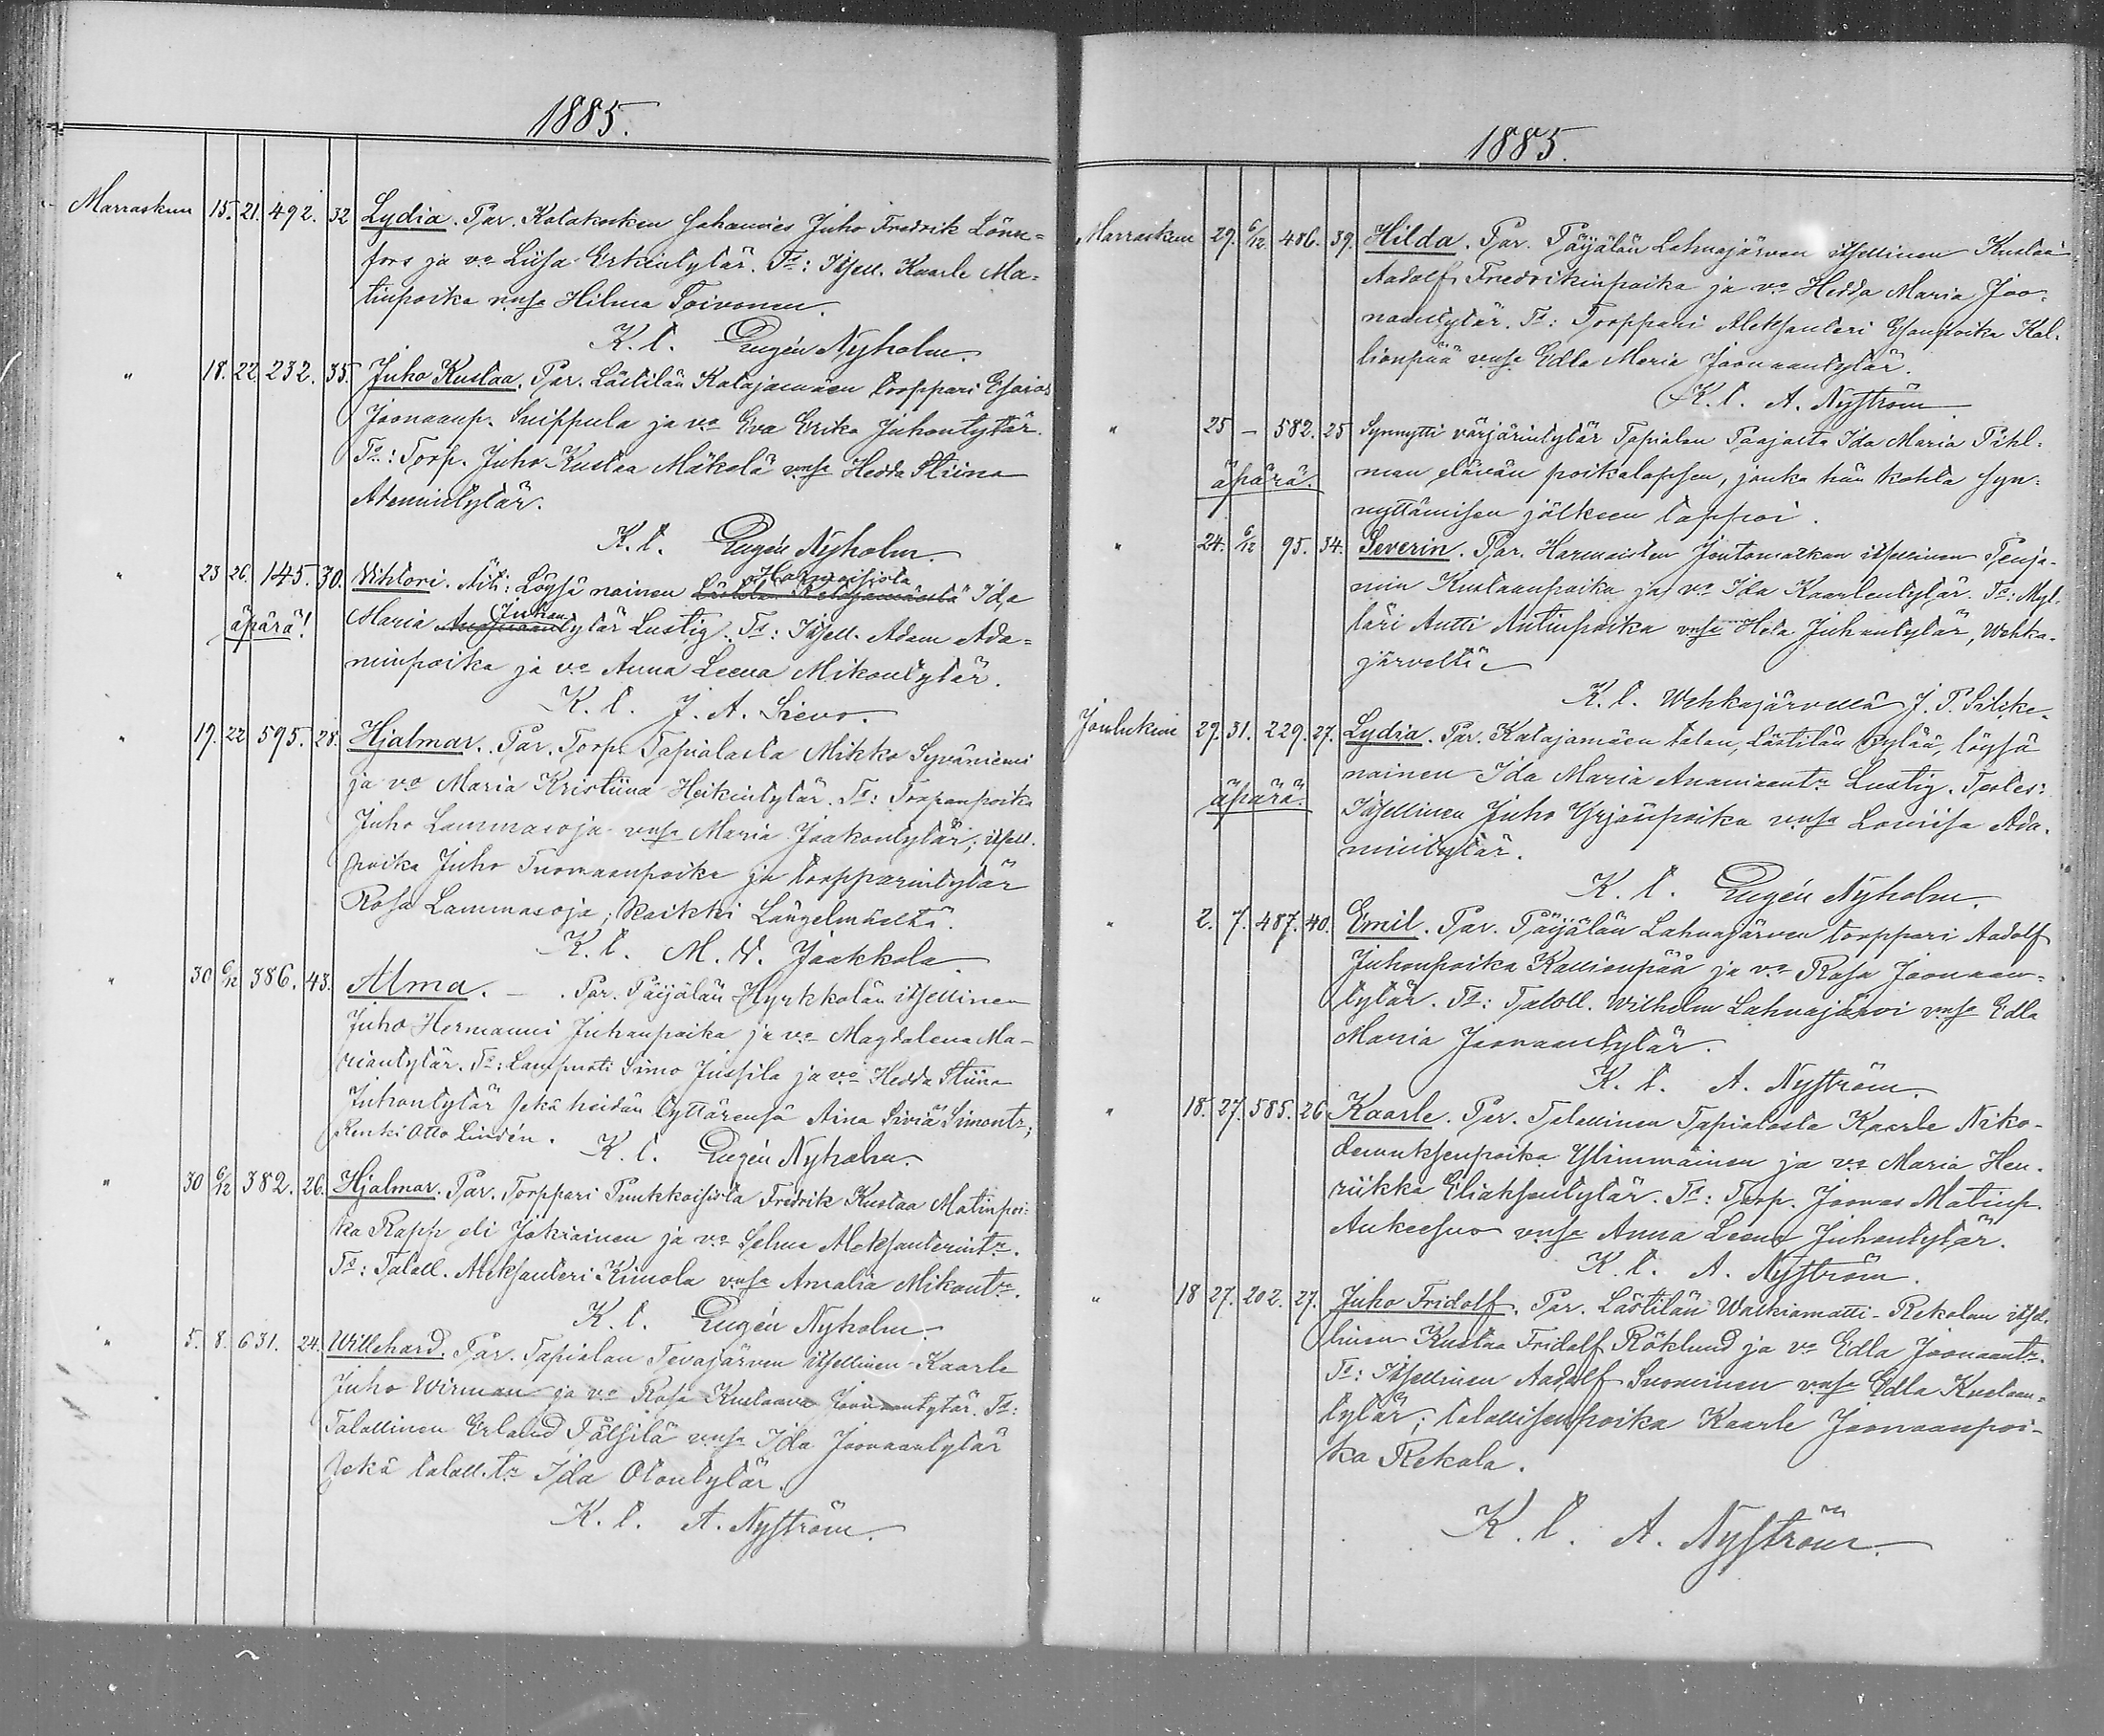 1885.
Marraskuu 15. 21. 492. 32 Lydia. Par. Kalakosken Johannes Juho Fredrik Lönn=
fors ja vo Liisa Erkintytär. Ts: Itsell. Kaarle Ma=
tinpoika vnsa Hilma Toivonen.
K. t. Eugén Nyholm.
" 18. 22 232. 35. Juho Kustaa. Par. Lästilän Katajamäen torppari Esaias
Joonaanp. Snippula ja vo Eva Erika Juhontytär.
Ts: Torp. Juho Kustaa Mäkelä vnsa Hedda Stiina
Atamintytär.
K. t. Eugén Nyholm.
" 23 26. 145. 30. Vihtori. Äiti: Löysä nainen Harmoisista Ida
äpärä! Maria Juhantytär Lustig. Ts: Itsell. Adam Ada=
minpoika ja vo Anna Leena Mikontytär.
K. t. J. A. Sievo.
" 19. 22 595. 28. Hjalmar. Par. Torp. Tapialasta Mikko Syväniemi
ja vo Maria Kristiina Heikintytär. Ts: Torpanpoika
Juho Lammasoja vnsa Maria Jaakontytär; itsell.
poika Juho Tuomaanpoika ja torpparintytär
Rosa Lammasoja; kaikki Längelmäeltä.
K. t. M. V. Jaakkola.
" 30 6/12 386. 43. Alma. — . Par. Päijälän Hyrkkolän itsellinen
Juho Hermanni Juhanpoika ja vo Magdalena Ma-
riantytär. Ts: Lampuoti Simo Jussila ja vo Hedda Stiina
Juhontytär sekä heidän tyttärensä Aina Siviä Simontr;
Renki Otto Lindén. K. t. Eugén Nyholm.
" 30 6/12 382. 26. Hjalmar. Par. Torppari Puukkoisista Fredrik Kustaa Matinpoi=
ka Rapp eli Jokiainen ja vo Selma Aleksanterintr.
Ts: Taloll. Aleksanteri Kimola vnsa Amalia Mikontr.
K. t. Eugén Nyholm.
" 5. 8. 631. 24. Willehard. Par. Tapialan Tevajärven itsellinen Kaarle
Juho Wirman ja vo Rosa Kustaava Joonaantytär. Ts:
Talollinen Erland Pälsilä vnsa Ida Joonaantytär
sekä taloll. tr Ida Otontytär.
K. t. A. Nyström.
1885.
Marraskuu 29. 6/12 486. 39. Hilda. Par. Päijälän Lahnajärven itsellinen Kustaa
Aadolf Fredrikinpoika ja vo Hedda Maria Joo-
naantytär. Ts: Torppari Aleksanteri Esanpoika Kal-
lionpää vnsa Edla Maria Joonaantytär.
K. t. A. Nyström
" 25 — 582. 25 Synnytti värjärintytär Tapialan Paajasta Ida Maria Pihl-
äpärä. man elävän poikalapsen, jonka hän kohta syn-
nyttämisen jälkeen tappoi.
" 24. 6/12 95. 34. Severin. Par. Harmoisten Joutomatkan itsellinen Penja-
min Kustaanpoika ja vo Ida Kaarlentytär. Ts: Myl-
läri Antti Antinpoika vnsa Heta Juhantytär, Wehka-
järveltä
K. t. Wehkajärvellä J. P. Siliske.
Joulukuu 27. 31. 229. 27. Lydia. Par. Katajamäen talon, Lästilän kylää, löysä
nainen Ida Maria Ananiaantr. Lustig. Todis:
äpärä. Itsellinen Juho Yrjönpoika vnsa Lowiisa Ada-
mintytär.
K. t. Eugén Nyholm.
" 2. 7. 487. 40. Emil. Par. Päijälän Lahnajärven torppari Aadolf
Juhonpoika Kallionpää ja vo Rosa Joonaan-
tytär. Ts: Taloll. Wilhelm Lahnajärvi vnsa Edla
Maria Joonaantytär.
K. t. A. Nyström.
" 18. 27. 585. 26 Kaarle. Par. Talollinen Tapialasta Kaarle Niko-
demuksenpoika Ylimmäinen ja vo Maria Hen-
riikka Eliaksentytär. Ts: Torp. Joonas Matinp.
Aukeesuo vnsa Anna Leena Juhontytär.
K. t. A. Nyström.
" 18 27. 202. 27. Juho Fridolf. Par. Lästilän Walkiamatti-Rekolan itsel-
linen Kustaa Fridolf Röklund ja vo Edla Joonaantr.
Ts: Itsellinen Aadolf Suominen vnsa Edla Kustaan-
tytär; talollisenpoika Kaarle Joonaanpoi-
ka Rekola.
K. t. A. Nyström.